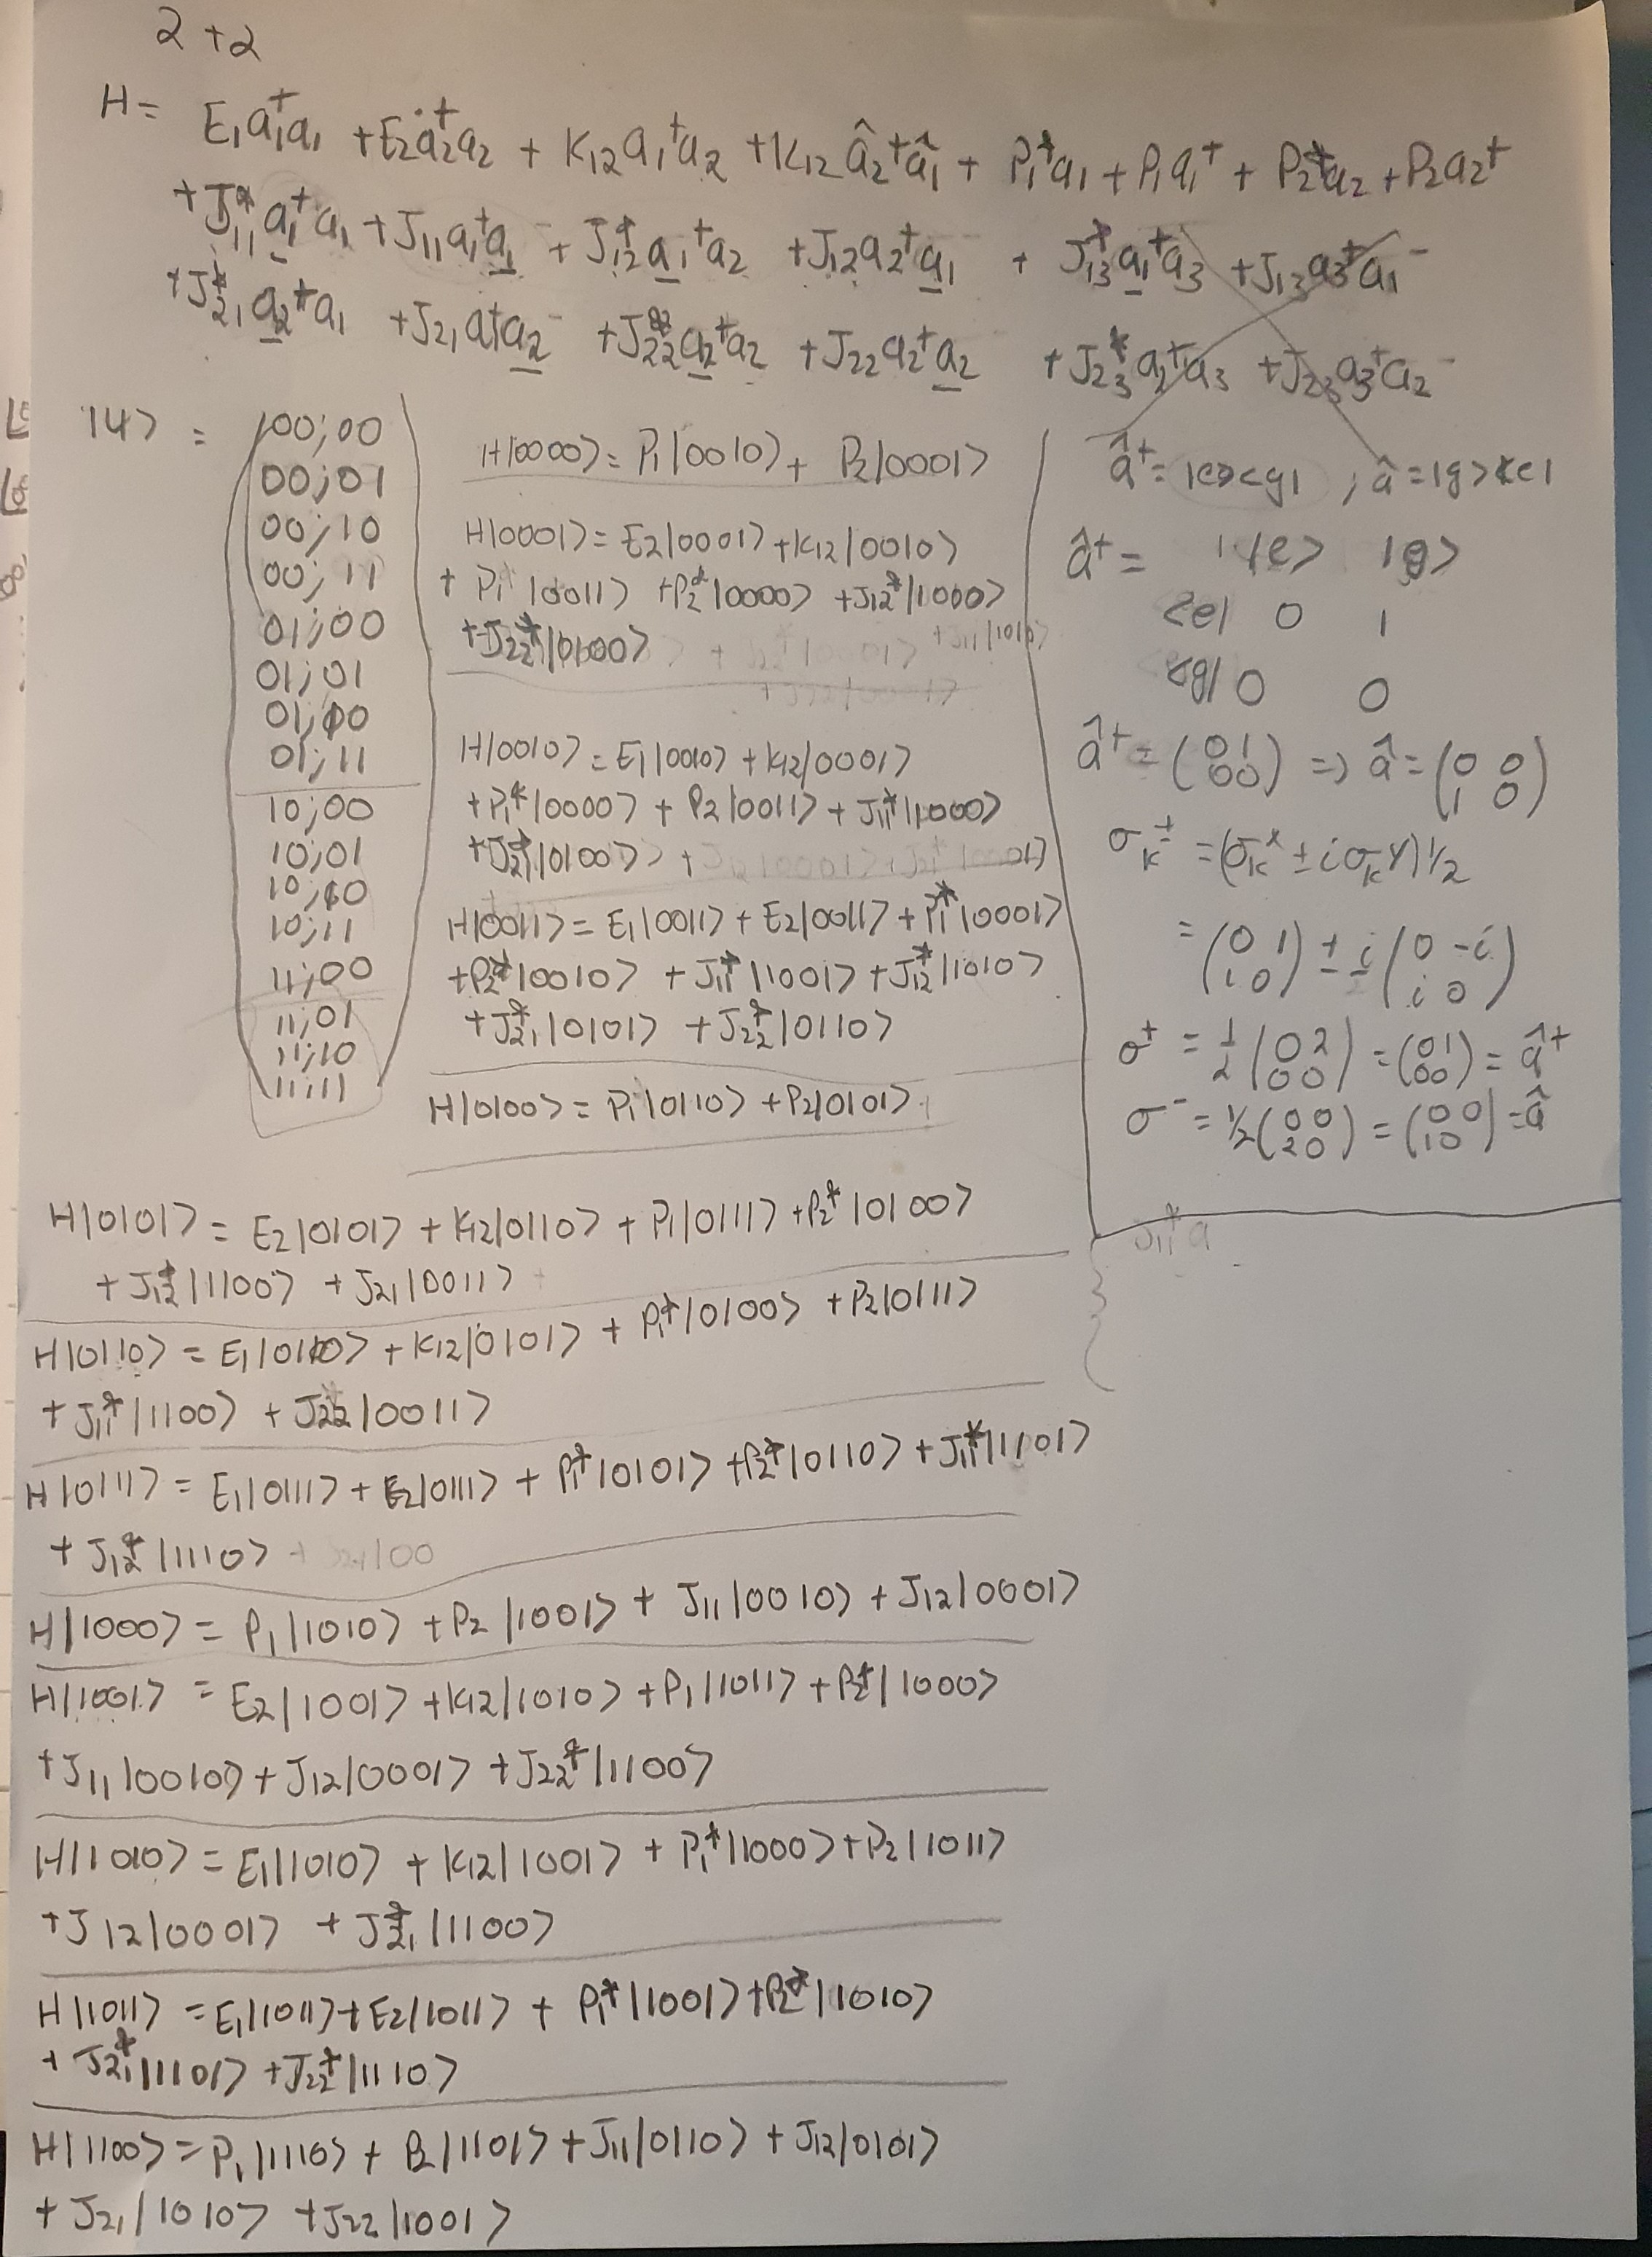 2+2
H = E₁a₁⁺a₁ + E₂a₂⁺a₂ + K₁₂a₁⁺a₂ + K₁₂â₂⁺â₁ + P₁*a₁ + P₁a₁⁺ + P₂*a₂ + P₂a₂⁺
+J₁₁*a₁⁺a₁ + J₁₁a₁⁺a₁⁻ + J₁₂*a₁⁺a₂ + J₁₂a₂⁺a₁⁻ + J₁₃*a₁⁺a₃ + J₁₃a₃⁺a₁⁻
+J₂₁*a₂⁺a₁ + J₂₁a₁⁺a₂⁻ + J₂₂*a₂⁺a₂ + J₂₂a₂⁺a₂⁻ + J₂₃*a₂⁺a₃ + J₂₃a₃⁺a₂⁻
|4> =
00;00
00;01
00;10
00;11
01;00
01;01
01;10
01;11
10;00
10;01
10;10
10;11
11;00
11;01
11;10
11;11
H|0000> = P₁|0010> + P₂|0001>
H|0001> = E₂|0001> + K₁₂|0010>
+ P₁|0011> + P₂*|0000> + J₁₂*|1000>
+ J₂₂*|0100>
H|0010> = E₁|0010> + K₁₂|0001>
+ P₁*|0000> + P₂|0011> + J₁₁*|1000>
+ J₂₁*|0100>
H|0011> = E₁|0011> + E₂|0011> + P₁*|0001>
+ P₂*|0010> + J₁₁*|1001> + J₁₂*|1010>
+ J₂₁*|0101> + J₂₂*|0110>
H|0100> = P₁|0110> + P₂|0101>
â⁺ = |e><g| ; â = |g><e|
â⁺ = |e> |g>
<e| 0 1
<g| 0 0
â⁺ = (0 1 => â = (0 0
0 0) 1 0)
σₖ± = (σₖˣ ± iσₖʸ)½
= (0 1 ± i (0 -i
1 0) i 0)
σ⁺ = 1/2 (0 2 = (0 1 = â⁺
0 0) 0 0)
σ⁻ = ½ (0 0 = (0 0 = â
2 0) 1 0)
J₁₁*a
H|0101> = E₂|0101> + K₁₂|0110> + P₁|0111> + P₂*|0100>
+ J₁₂*|1100> + J₂₁|0011>
H|0110> = E₁|0110> + K₁₂|0101> + P₁*|0100> + P₂|0111>
+ J₁₁*|1100> + J₂₂|0011>
H|0111> = E₁|0111> + E₂|0111> + P₁*|0101> + P₂*|0110> + J₁₁*|1101>
+ J₁₂*|1110>
H|1000> = P₁|1010> + P₂|1001> + J₁₁|0010> + J₁₂|0001>
H|1001> = E₂|1001> + K₁₂|1010> + P₁|1011> + P₂*|1000>
+ J₁₁|0010> + J₁₂|0001> + J₂₂*|1100>
H|1010> = E₁|1010> + K₁₂|1001> + P₁*|1000> + P₂|1011>
+ J₁₂|0001> + J₂₁*|1100>
H|1011> = E₁|1011> + E₂|1011> + P₁*|1001> + P₂*|1010>
+ J₂₁*|1101> + J₂₂*|1110>
H|1100> = P₁|1110> + P₂|1101> + J₁₁|0110> + J₁₂|0101>
+ J₂₁|1010> + J₂₂|1001>